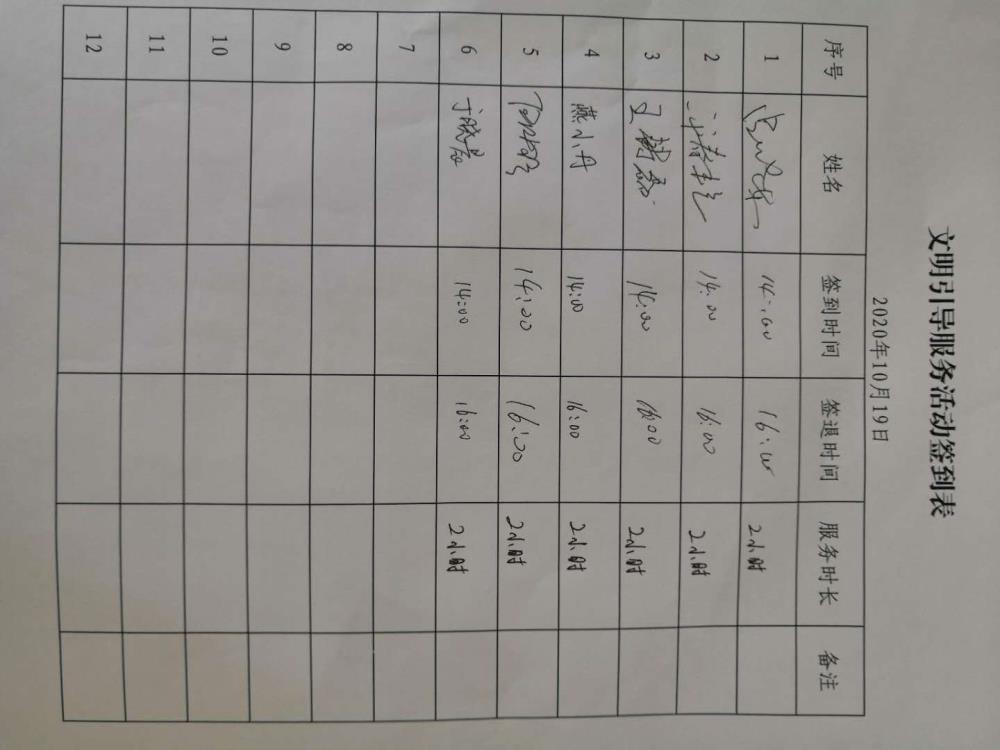 文明引导服务活动签到表
2020年10月19日
序号 姓名 签到时间 签退时间 服务时长 备注
1 14:00 16:00 2小时
2 14:00 16:00 2小时
3 14:00 16:00 2小时
4 燕小丹 14:00 16:00 2小时
5 14:00 16:00 2小时
6 于晓磊 14:00 16:00 2小时
7
8
9
10
11
12